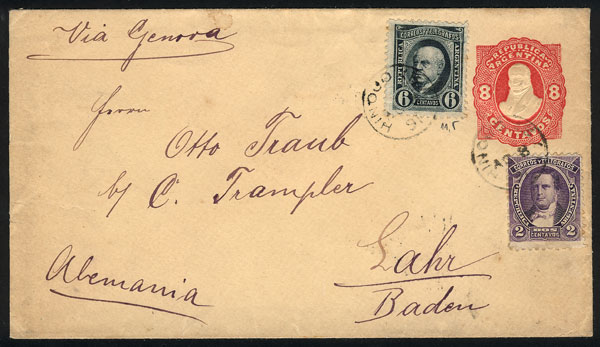 Via Genova
CORREOS Y TELEGRAFOS
REPUBLICA
ARGENTINA
6 6
CENTAVOS
REPUBLICA
ARGENTINA
8 8
CENTAVOS
Herrn
Otto Traub
b/ C. Trampler
Lahr
Baden
Alemania
CORREOS Y TELEGRAFOS
DOS
2 2
CENTAVOS